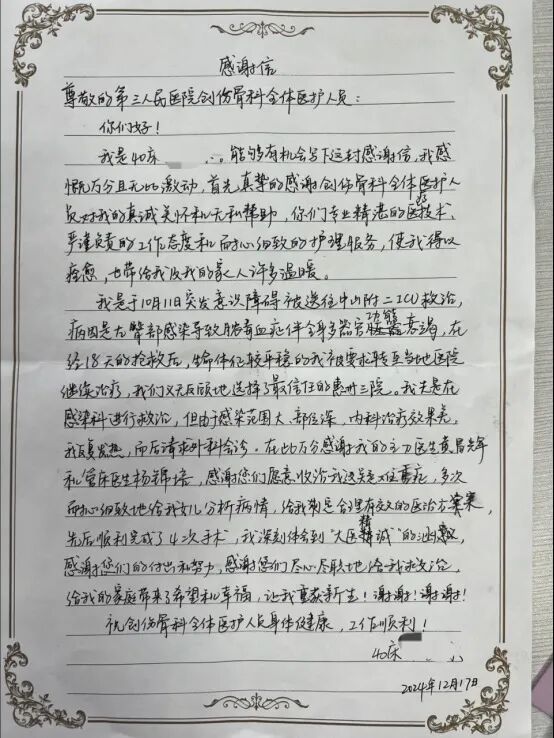 感谢信
尊敬的第三人民医院创伤骨科全体医护人员：
你们好！
我是40床 能够有机会写下这封感谢信，我感
慨万分且无比激动，首先真挚的感谢创伤骨科全体医护人
员对我的真诚关怀和无私帮助，你们专业精湛的医技术、
严谨负责的工作态度和耐心细致的护理服务，使我得以
痊愈，也带给我及我的家人许多温暖。
我是于10月11日突发意识障碍被送往中山附二ICU救治，
病因是左臀部感染导致脓毒血症伴全身多器官功能衰竭，在
经18天的抢救后，生命体征较平稳的我被要求转至当地医院
继续治疗，我们义无反顾地选择了最信任的惠州三院。我先是在
感染科进行救治，但由于感染范围大、部位深，内科治疗效果差，
我反复发热，而后请求外科会诊。在此万分感谢我的主刀医生黄昌
和管床医生杨 培，感谢您们愿意收治我这疑难重症，多次
耐心细致地给我女儿分析病情，给我制定合理有效的医治方案，
先后顺利完成了4次手术，我深刻体会到“大医精诚”的涵义，
感谢您们的付出和努力，感谢您们尽心尽职地给我救治，
给我的家庭带来了希望和幸福，让我重获新生！谢谢！谢谢！
祝创伤骨科全体医护人员身体健康，工作顺利！
40床
2024年12月17日